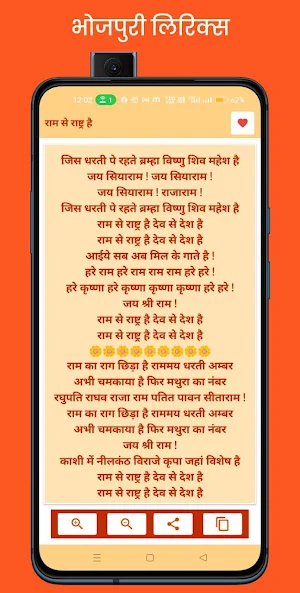 भोजपुरी लिरिक्स
12:02 1 62%
राम से राष्ट्र है
जिस धरती पे रहते ब्रम्हा विष्णु शिव महेश है
जय सियाराम ! जय सियाराम !
जय सियाराम ! राजाराम !
जिस धरती पे रहते ब्रम्हा विष्णु शिव महेश है
राम से राष्ट्र है देव से देश है
राम से राष्ट्र है देव से देश है
आईये सब अब मिल के गाते है !
हरे राम हरे राम राम राम हरे हरे !
हरे कृष्णा हरे कृष्णा कृष्णा कृष्णा हरे हरे !
जय श्री राम !
राम से राष्ट्र है देव से देश है
राम से राष्ट्र है देव से देश है
राम का राग छिड़ा है राममय धरती अम्बर
अभी चमकाया है फिर मथुरा का नंबर
रघुपति राघव राजा राम पतित पावन सीताराम !
राम का राग छिड़ा है राममय धरती अम्बर
अभी चमकाया है फिर मथुरा का नंबर
जय श्री राम !
काशी में नीलकंठ विराजे कृपा जहां विशेष है
राम से राष्ट्र है देव से देश है
राम से राष्ट्र है देव से देश है